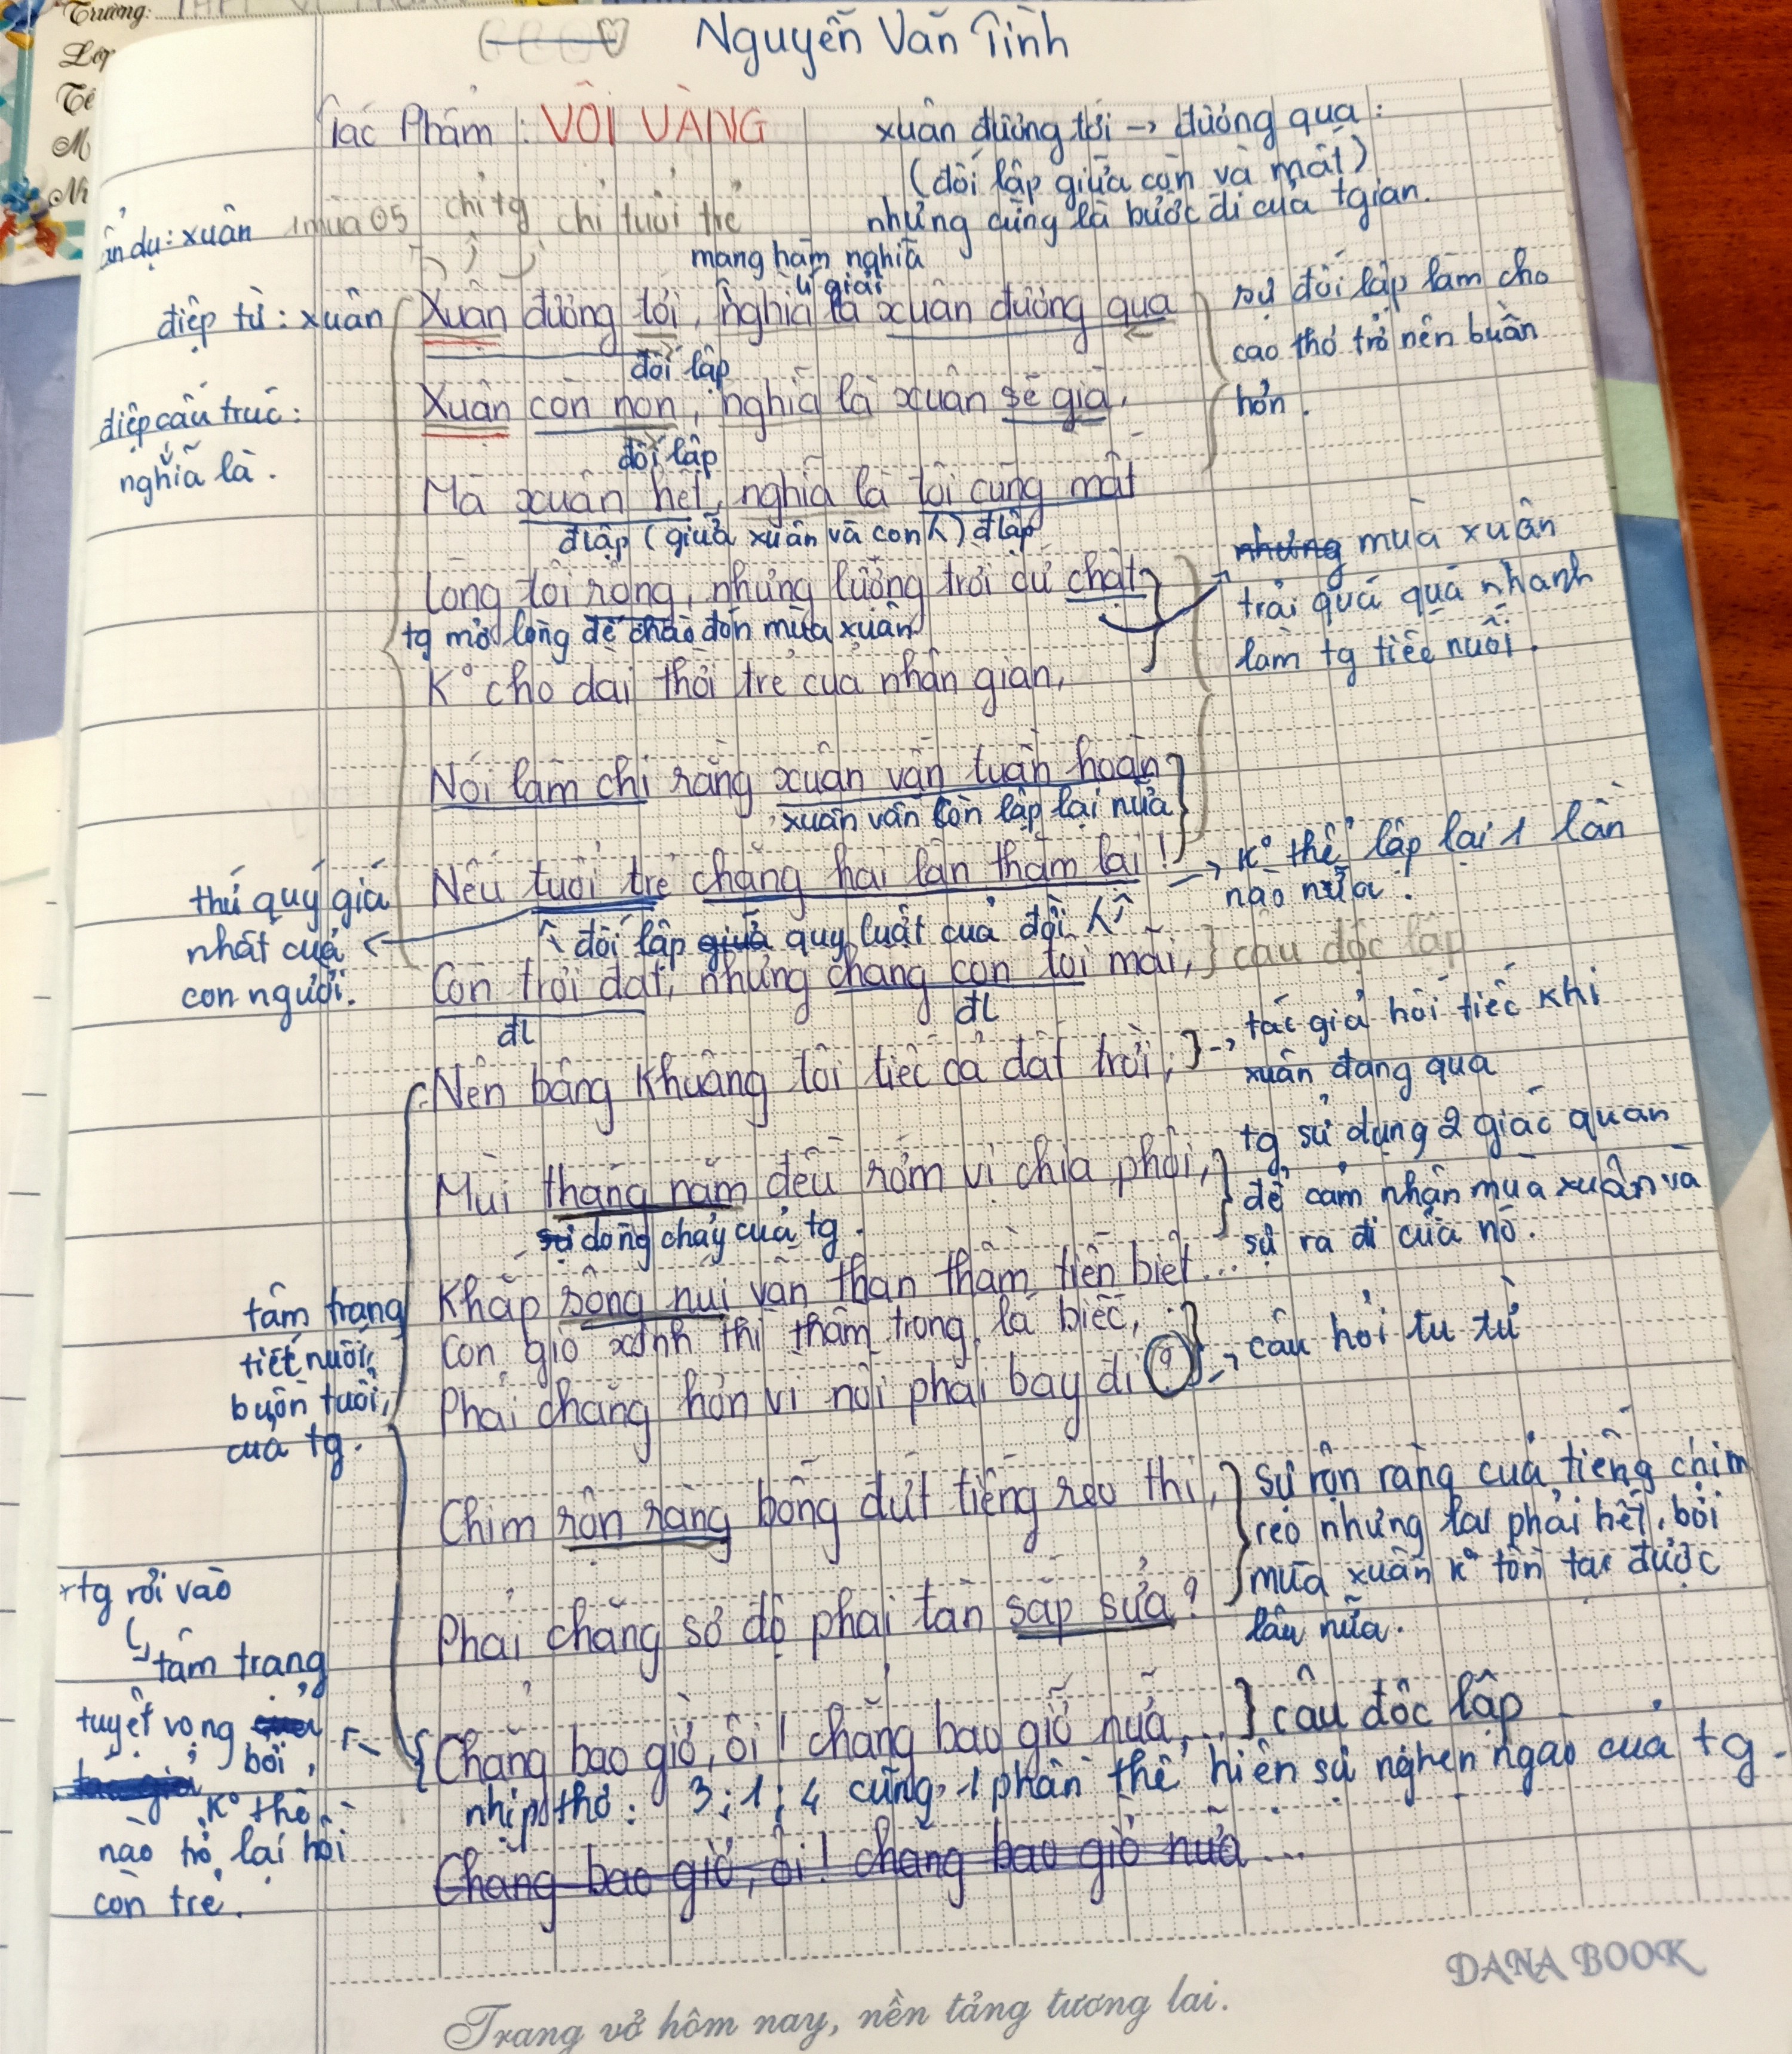 Trường: THPT
Lớp
Tê
M
Nh
Nguyễn Văn Tình
Tác Phẩm : VỘI VÀNG
xuân đương tới -> đương qua :
(đối lập giữa còn và mất)
nhưng cũng là bước đi của tgian.
ẩn dụ: xuân
1 mùa 05 chỉ tg chỉ tuổi trẻ
mang hàm nghĩa
lí giải
điệp từ : xuân
Xuân đương tới, nghĩa là xuân đương qua
sự đối lập làm cho
cao thơ trở nên buồn
hơn.
đối lập
điệp cấu trúc :
nghĩa là.
Xuân còn non, nghĩa là xuân sẽ già,
đối lập
Mà xuân hết, nghĩa là tôi cũng mất
đlập (giữa xuân và con ng) đlập
Lòng tôi rộng, nhưng lượng trời cứ chật
những mùa xuân
trải quá quá nhanh
làm tg tiếc nuối.
tg mở lòng để chào đón mùa xuân
K° cho dài thời trẻ của nhân gian,
Nói làm chi rằng xuân vẫn tuần hoàn
xuân vẫn còn lập lại nữa
Nếu tuổi trẻ chẳng hai lần thắm lại !
-> K° thể lập lại 1 lần
nào nữa.
thứ quý giá
nhất của
con người.
đối lập giữa quy luật của đời
Còn trời đất, nhưng chẳng còn tôi mãi, } câu độc lập
đl đl
Nên bâng khuâng tôi tiếc cả đất trời; } -> tác giả hối tiếc khi
xuân đang qua
Mùi tháng năm đều rớm vị chia phôi,
tg sử dụng 2 giác quan
để cảm nhận mùa xuân và
sự ra đi của nó.
sự dòng chảy của tg.
Khắp sông núi vẫn than thầm tiễn biệt...
Con gió xinh thì thầm trong lá biếc,
Phải chăng hờn vì nỗi phải bay đi ? } -> câu hỏi tu từ
tâm trạng
tiết nuối,
buồn tuổi,
của tg.
Chim rộn ràng bỗng dứt tiếng reo thi,
Sự rộn ràng của tiếng chim
reo nhưng lại phải hết, bởi
mùa xuân k° tồn tại được
lâu nữa.
Phải chăng sợ độ phai tàn sắp sửa ?
tg rơi vào
tâm trạng
tuyệt vọng
bởi,
K° thể
nào trở lại hồi
còn trẻ.
Chẳng bao giờ, ôi ! chẳng bao giờ nữa... } câu độc lập
nhịp thơ : 3;1;4 cũng 1 phần thể hiện sự nghẹn ngào của tg.
Chẳng bao giờ, ôi ! chẳng bao giờ nữa...
DANA BOOK
Trang vở hôm nay, nền tảng tương lai.